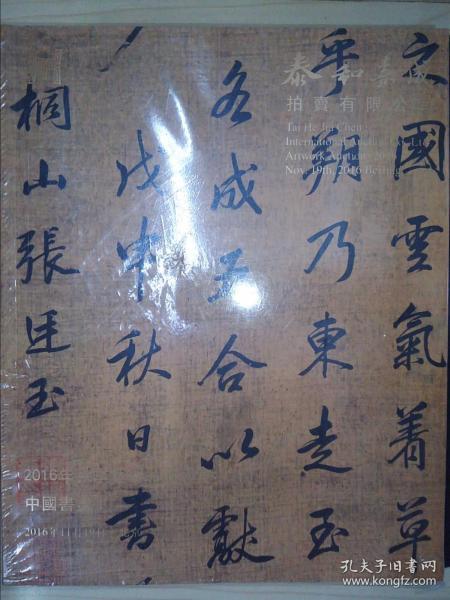 文國雲氣着草
乎朔乃東走玉
名成五合以獻
戊申秋日書
桐山張廷玉
泰和嘉成
拍賣有限公
Tai He Jia Cheng
International Auction Co., Ltd
Artwork Auction
Nov. 19th, 2016 Beijing
2016年
中國書
2016年11月19日
孔夫子旧书网
www.kongfz.com